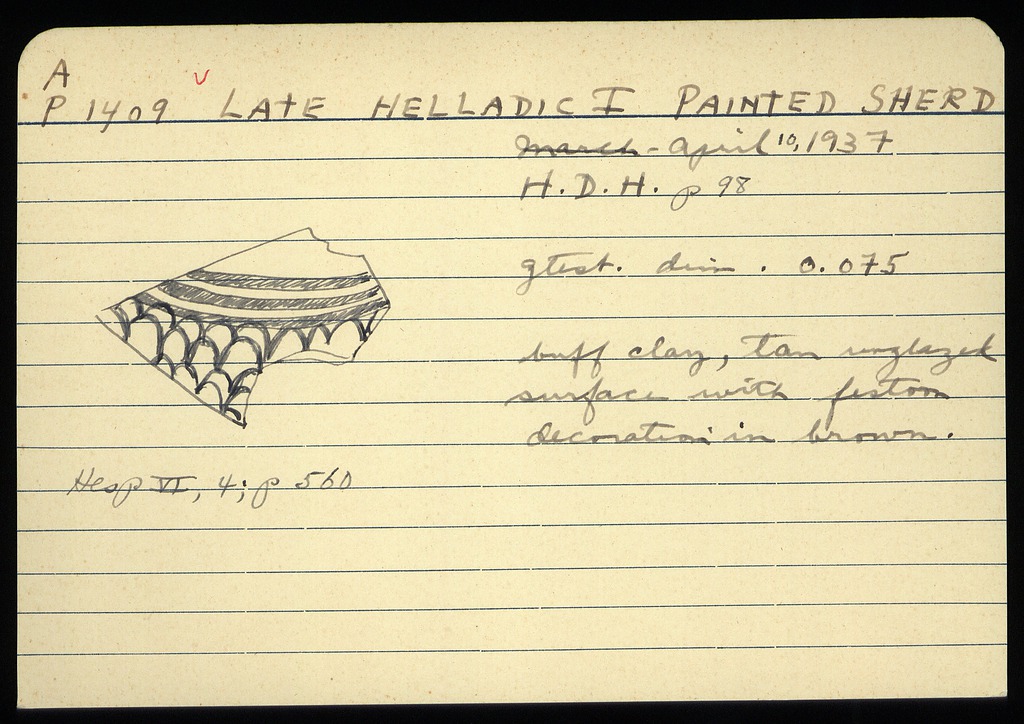 A
P 1409 LATE HELLADIC I PAINTED SHERD
March - April 10, 1937
H.D.H. p 98
gtest. dim. 0.075
buff clay, tan unglazed
surface with festoon
decoration in brown.
Hesp VI, 4; p 560